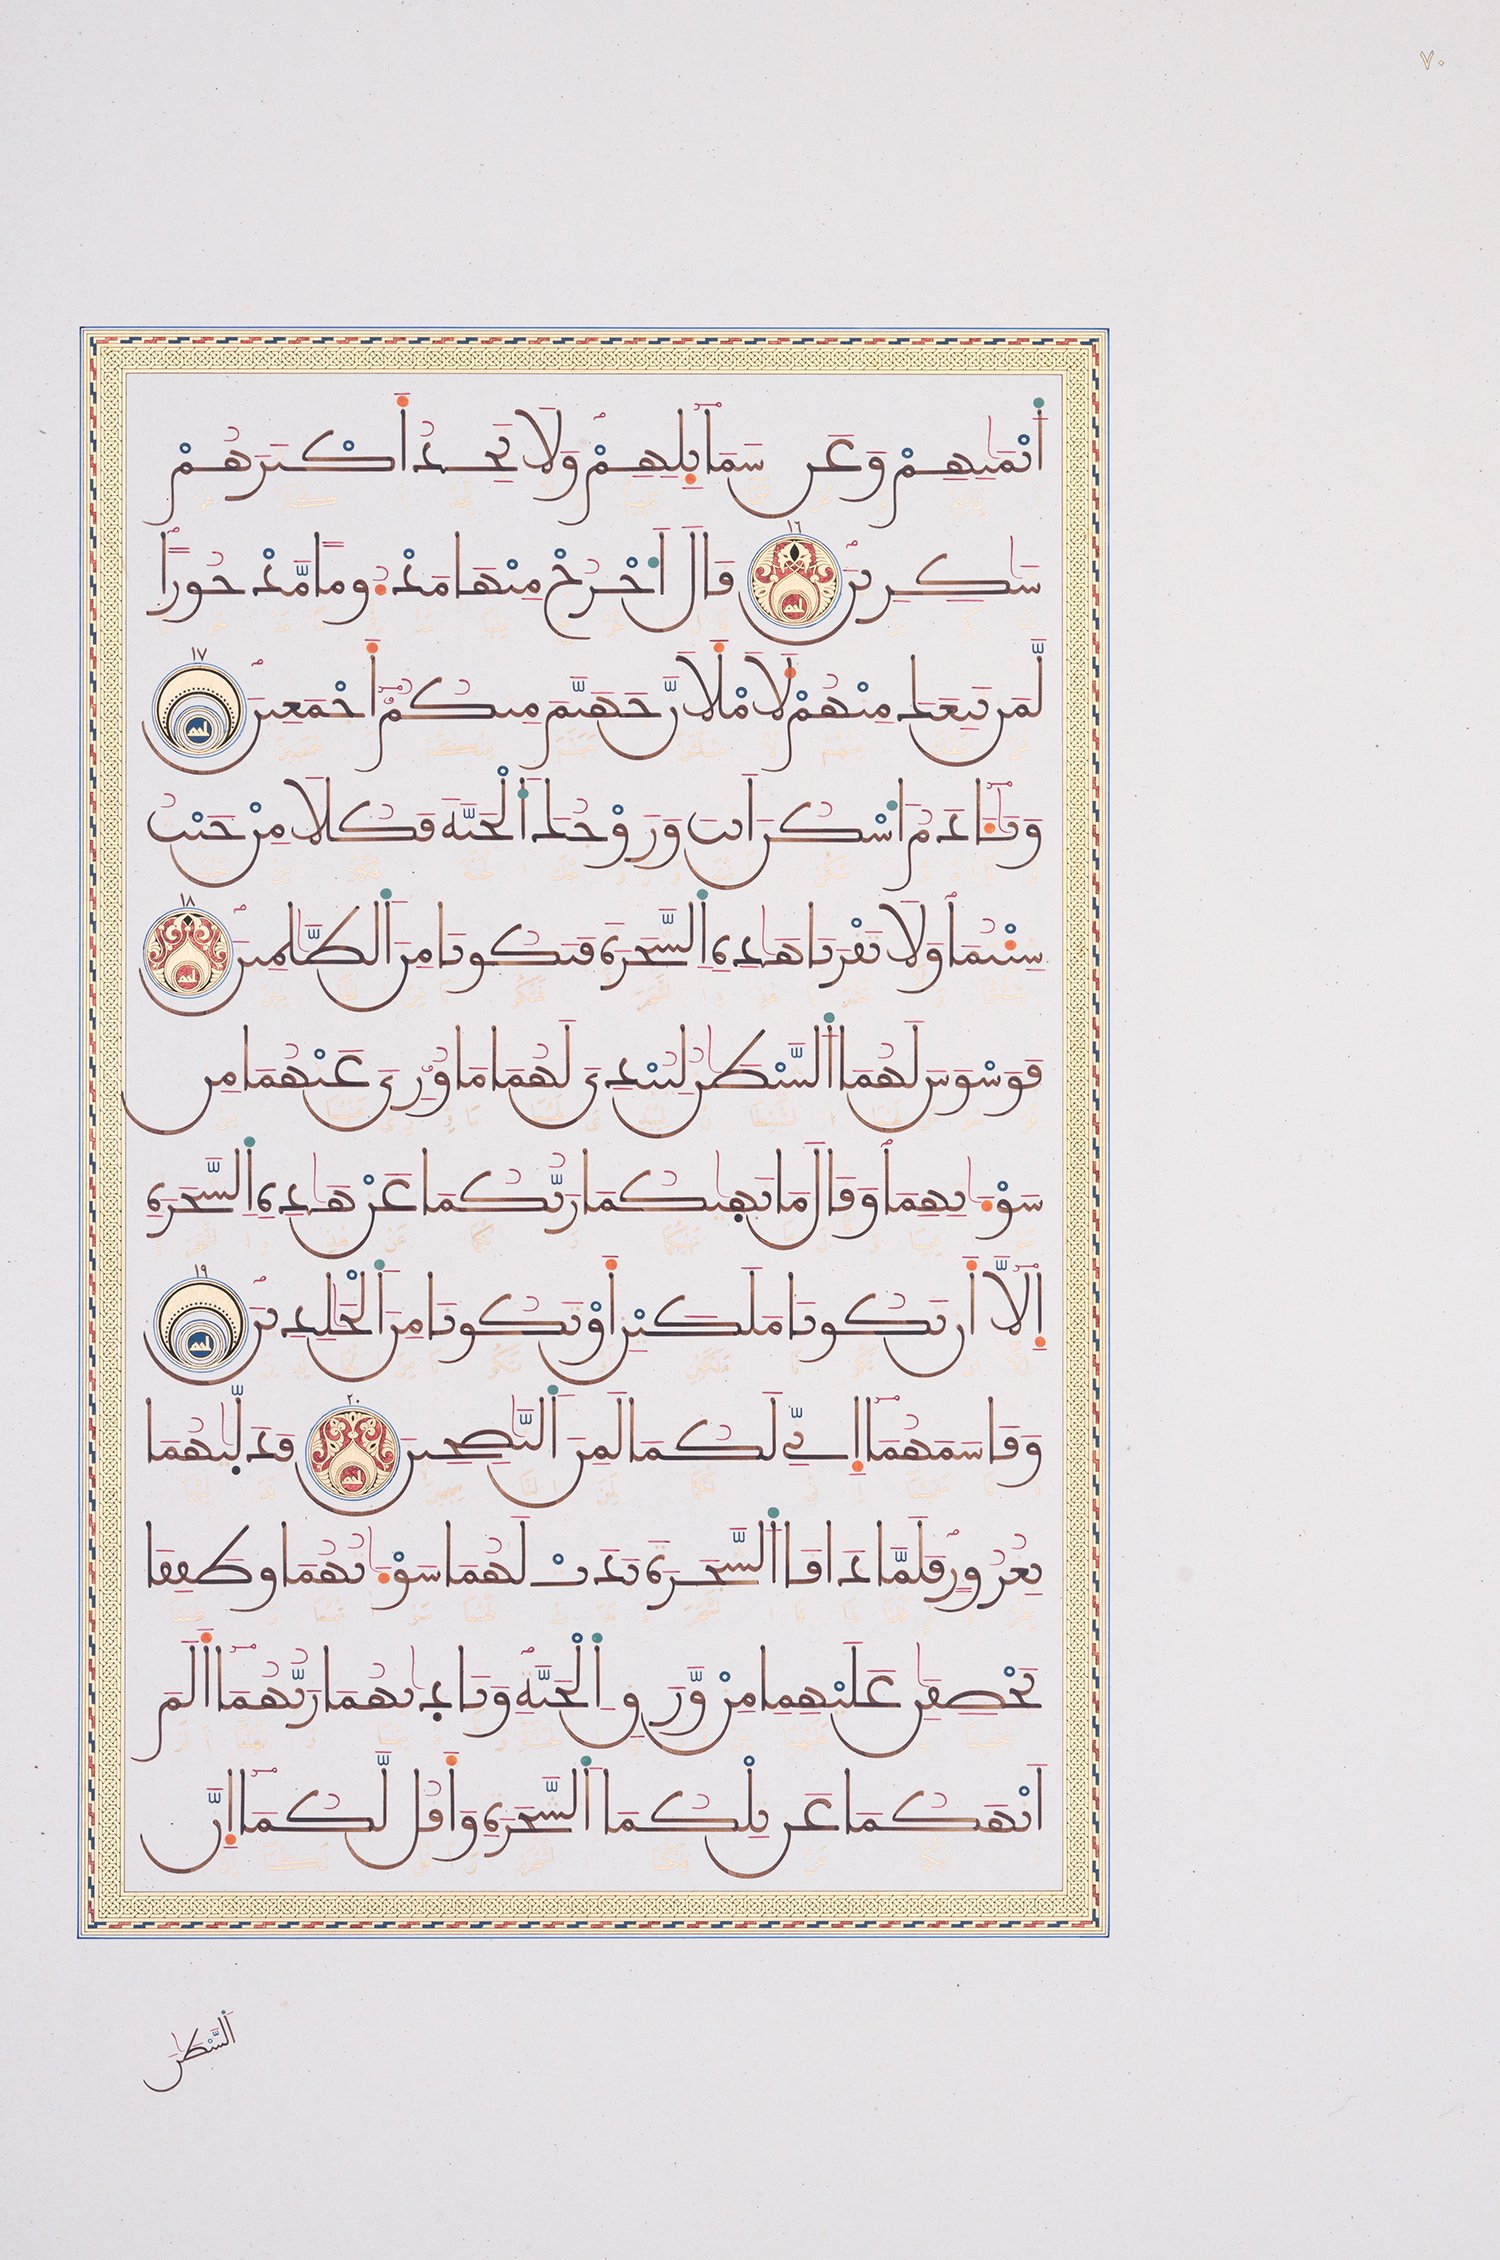 ٧٠
أَيْمَٰنِهِمْ وَعَن شَمَآئِلِهِمْ وَلَا تَجِدُ أَكْثَرَهُمْ
شَٰكِرِينَ ١٦ قَالَ اَخْرُجْ مِنْهَا مَذْءُومًا مَّدْحُورًا
لَّمَن تَبِعَكَ مِنْهُمْ لَأَمْلَأَنَّ جَهَنَّمَ مِنكُمُۥٓ أَجْمَعِينَ ١٧
وَيَٰٓـَٔادَمُ اُسْكُنَ اَنتَ وَزَوْجُكَ اَلْجَنَّةَ فَكُلَا مِنْ حَيْثُ
شِئْتُمَا وَلَا تَقْرَبَا هَٰذِهِ اِلشَّجَرَةَ فَتَكُونَا مِنَ اَلظَّٰلِمِينَ ١٨
فَوَسْوَسَ لَهُمَا اَلشَّيْطَٰنُ لِيُبْدِيَ لَهُمَا مَا وُۥرِيَ عَنْهُمَا مِن
سَوْءَٰتِهِمَا وَقَالَ مَا نَهَىٰكُمَا رَبُّكُمَا عَنْ هَٰذِهِ اِلشَّجَرَةِ
إِلَّآ أَن تَكُونَا مَلَكَيْنِ أَوْ تَكُونَا مِنَ اَلْخَٰلِدِينَ ١٩
وَقَاسَمَهُمَآ إِنِّي لَكُمَا لَمِنَ اَلنَّٰصِحِينَ ٢٠ فَدَلَّىٰهُمَا
بِغُرُورٍ فَلَمَّا ذَاقَا اَلشَّجَرَةَ بَدَتْ لَهُمَا سَوْءَٰتُهُمَا وَطَفِقَا
يَخْصِفَٰنِ عَلَيْهِمَا مِنْ وَّرَقِ اِلْجَنَّةِ وَنَادَىٰهُمَا رَبُّهُمَآ أَلَمَ
اَنْهَكُمَا عَن تِلْكُمَا اَلشَّجَرَةِ وَأَقُل لَّكُمَآ إِنَّ
اَلشَّيْطَٰنَ